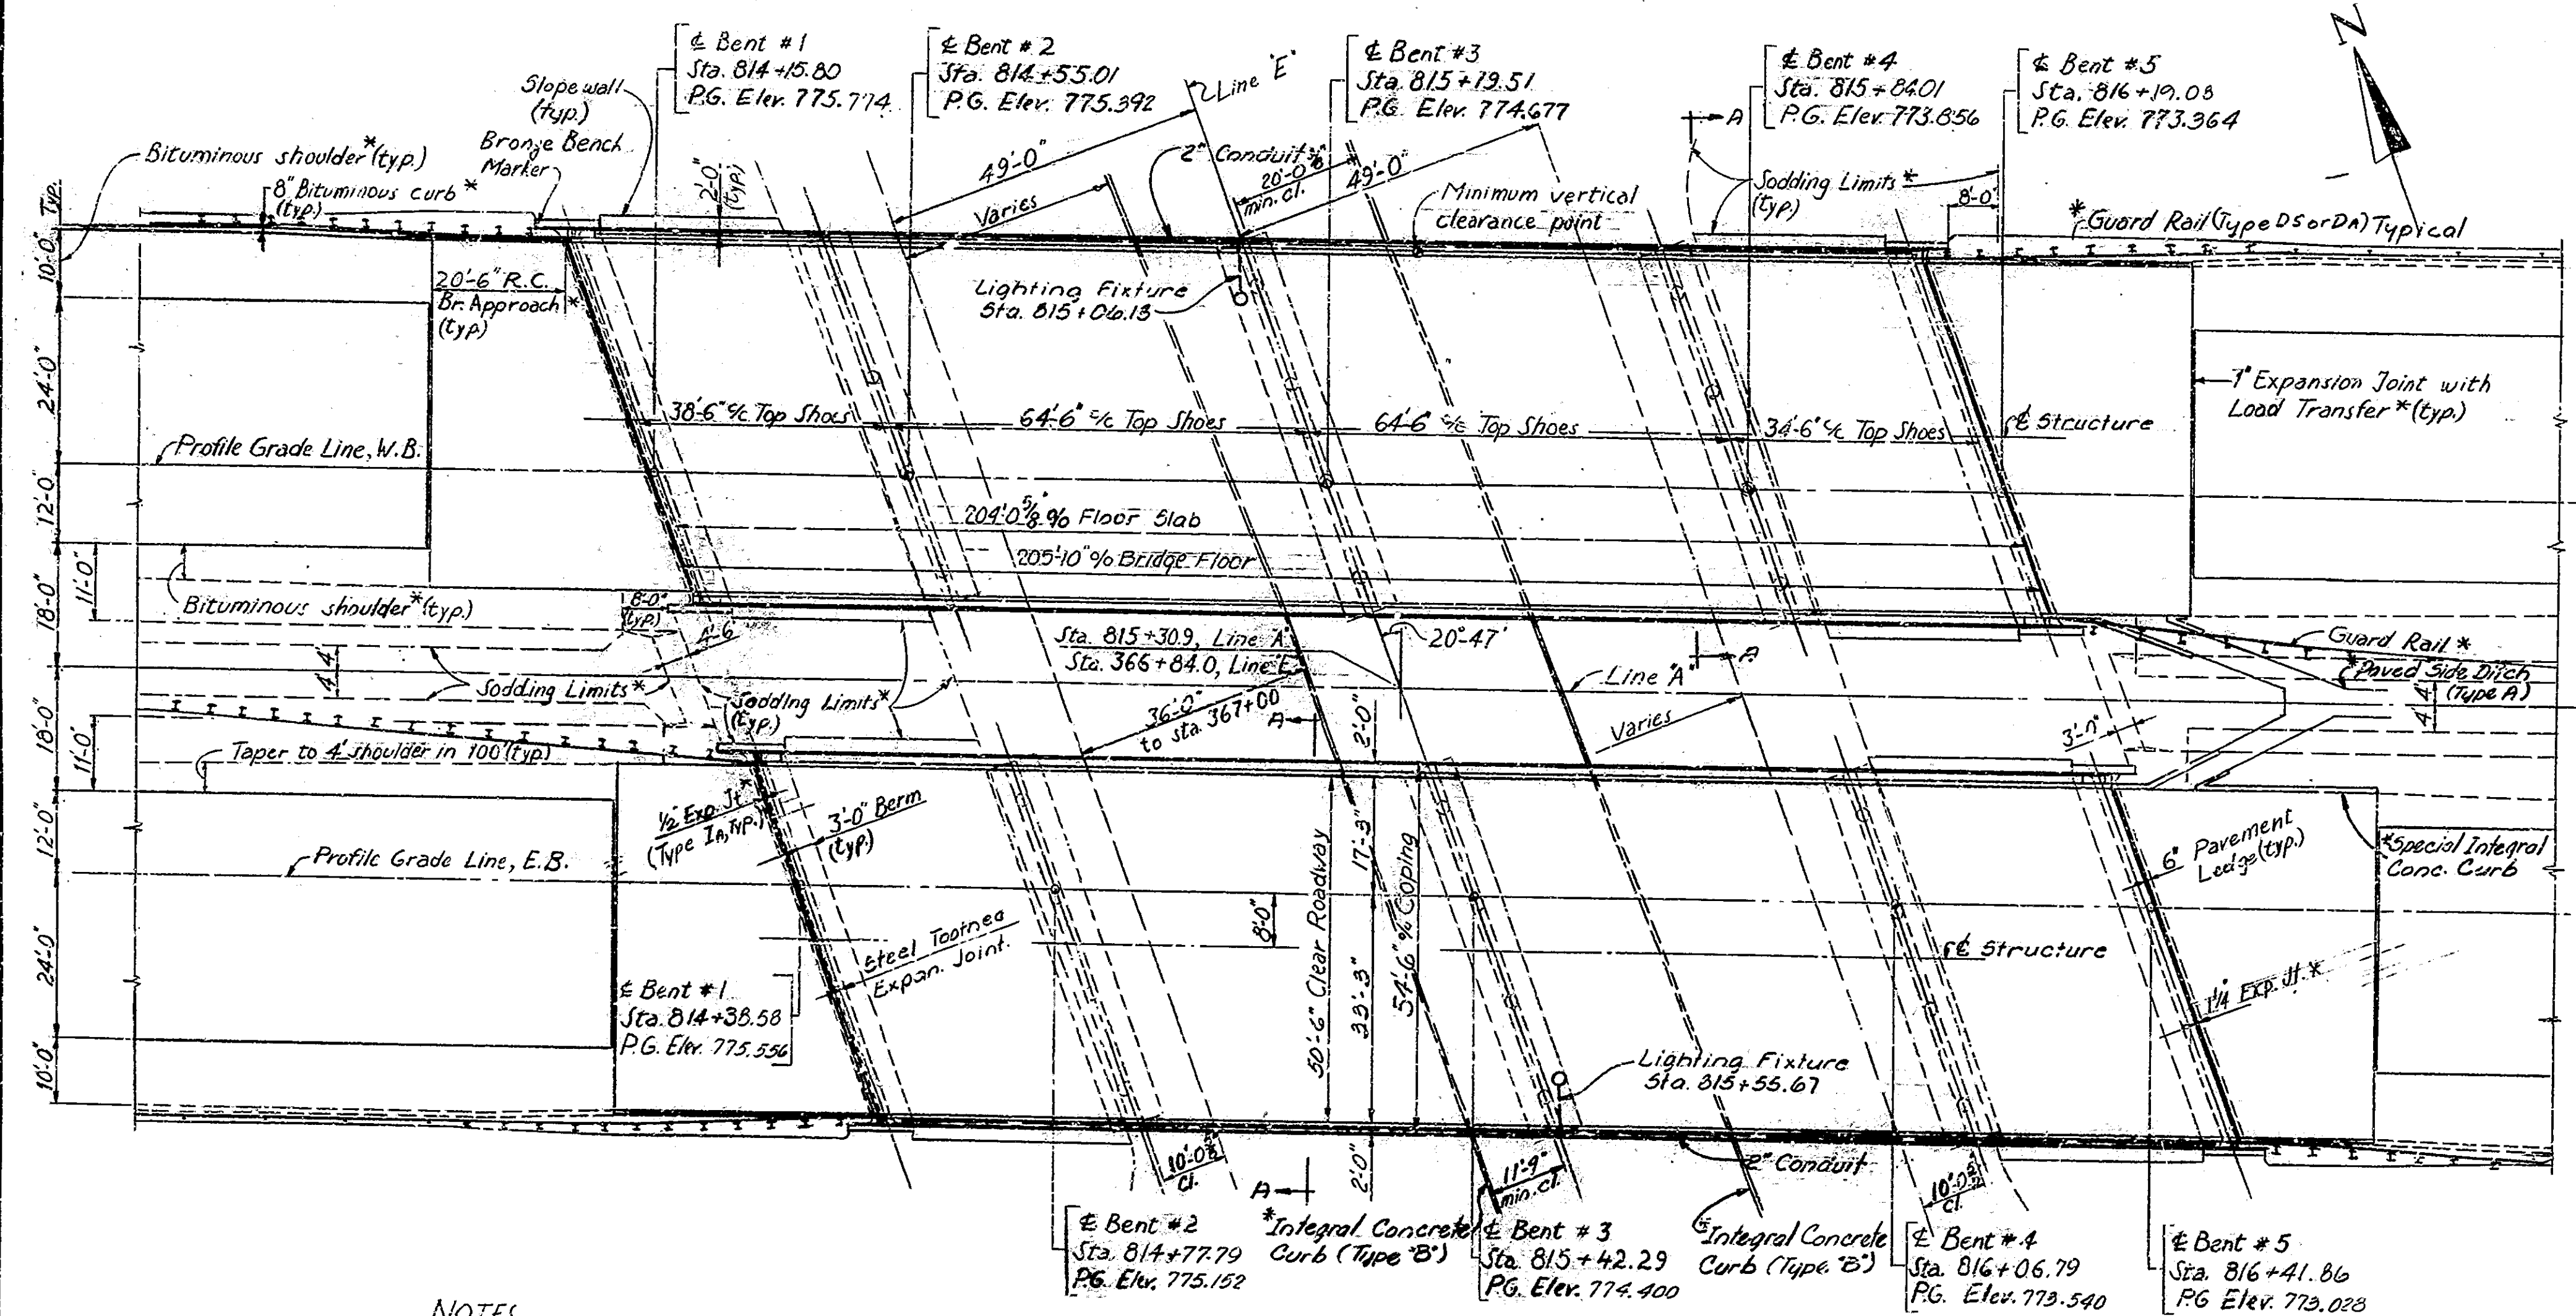 ℄ Bent #1
Sta. 814+15.80
P.G. Elev. 775.774
℄ Bent #2
Sta. 814+55.01
P.G. Elev. 775.392
Line "E"
℄ Bent #3
Sta. 815+19.51
P.G. Elev. 774.677
℄ Bent #4
Sta. 815+84.01
P.G. Elev. 773.856
℄ Bent #5
Sta. 816+19.08
P.G. Elev. 773.364
N
Slope wall
(typ.)
Bronze Bench
Marker
Bituminous shoulder*(typ.)
8" Bituminous curb*
(typ.)
2'-0"
(typ.)
49'-0"
Varies
2" Conduit
20'-0
min. cl.
49'-0"
Minimum vertical
clearance point
A
Sodding Limits*
(typ.)
8'-0"
*Guard Rail (Type DS or DA) Typical
Typ.
10'-0"
20'-6" R.C.
Br. Approach*
(typ)
Lighting Fixture
Sta. 815+06.13
24'-0"
38'-6" c/c Top Shoes
64'-6" c/c Top Shoes
64'-6" c/c Top Shoes
34'-6" c/c Top Shoes
℄ Structure
1" Expansion Joint with
Load Transfer*(typ.)
Profile Grade Line, W.B.
12'-0"
204'-0 5/8" o/o Floor Slab
205'-10" o/o Bridge Floor
11'-0"
18'-0"
Bituminous shoulder*(typ.)
8'-0"
(typ.)
4'-6"
Sta. 815+30.9, Line "A"
Sta. 366+84.0, Line "E"
20°-47'
A
Guard Rail*
*Paved Side Ditch
(Type A)
4'
4'
Sodding Limits*
Sodding Limits*
(typ.)
36'-0"
to sta. 367+00
A
2'-0"
Line "A"
Varies
3'-0"
4'
4'
18'-0"
11'-0"
Taper to 4' shoulder in 100' (typ.)
1/2" Exp. Jt*
(Type IA, Typ.)
3'-0" Berm
(typ.)
12'-0"
Profile Grade Line, E.B.
50'-6" Clear Roadway
17'-3"
33'-3"
54'-6" o/o Coping
8'-0"
6" Pavement
Ledge (typ.)
*Special Integral
Conc. Curb
Steel Toothed
Expan. Joint.
℄ Structure
1 1/4" Exp. Jt.*
24'-0"
℄ Bent #1
Sta. 814+38.58
P.G. Elev. 775.556
10'-0"
Lighting Fixture
Sta. 815+55.67
2" Conduit
10'-0 5/8"
cl.
A
2'-0"
11'-9"
min. cl.
10'-0
cl.
℄ Bent #2
Sta. 814+77.79
P.G. Elev. 775.152
*Integral Concrete
Curb (Type "B")
℄ Bent #3
Sta 815+42.29
P.G. Elev. 774.400
*Integral Concrete
Curb (Type "B")
℄ Bent #4
Sta. 816+06.79
P.G. Elev. 773.540
℄ Bent #5
Sta. 816+41.86
P.G Elev. 773.028
NOTES